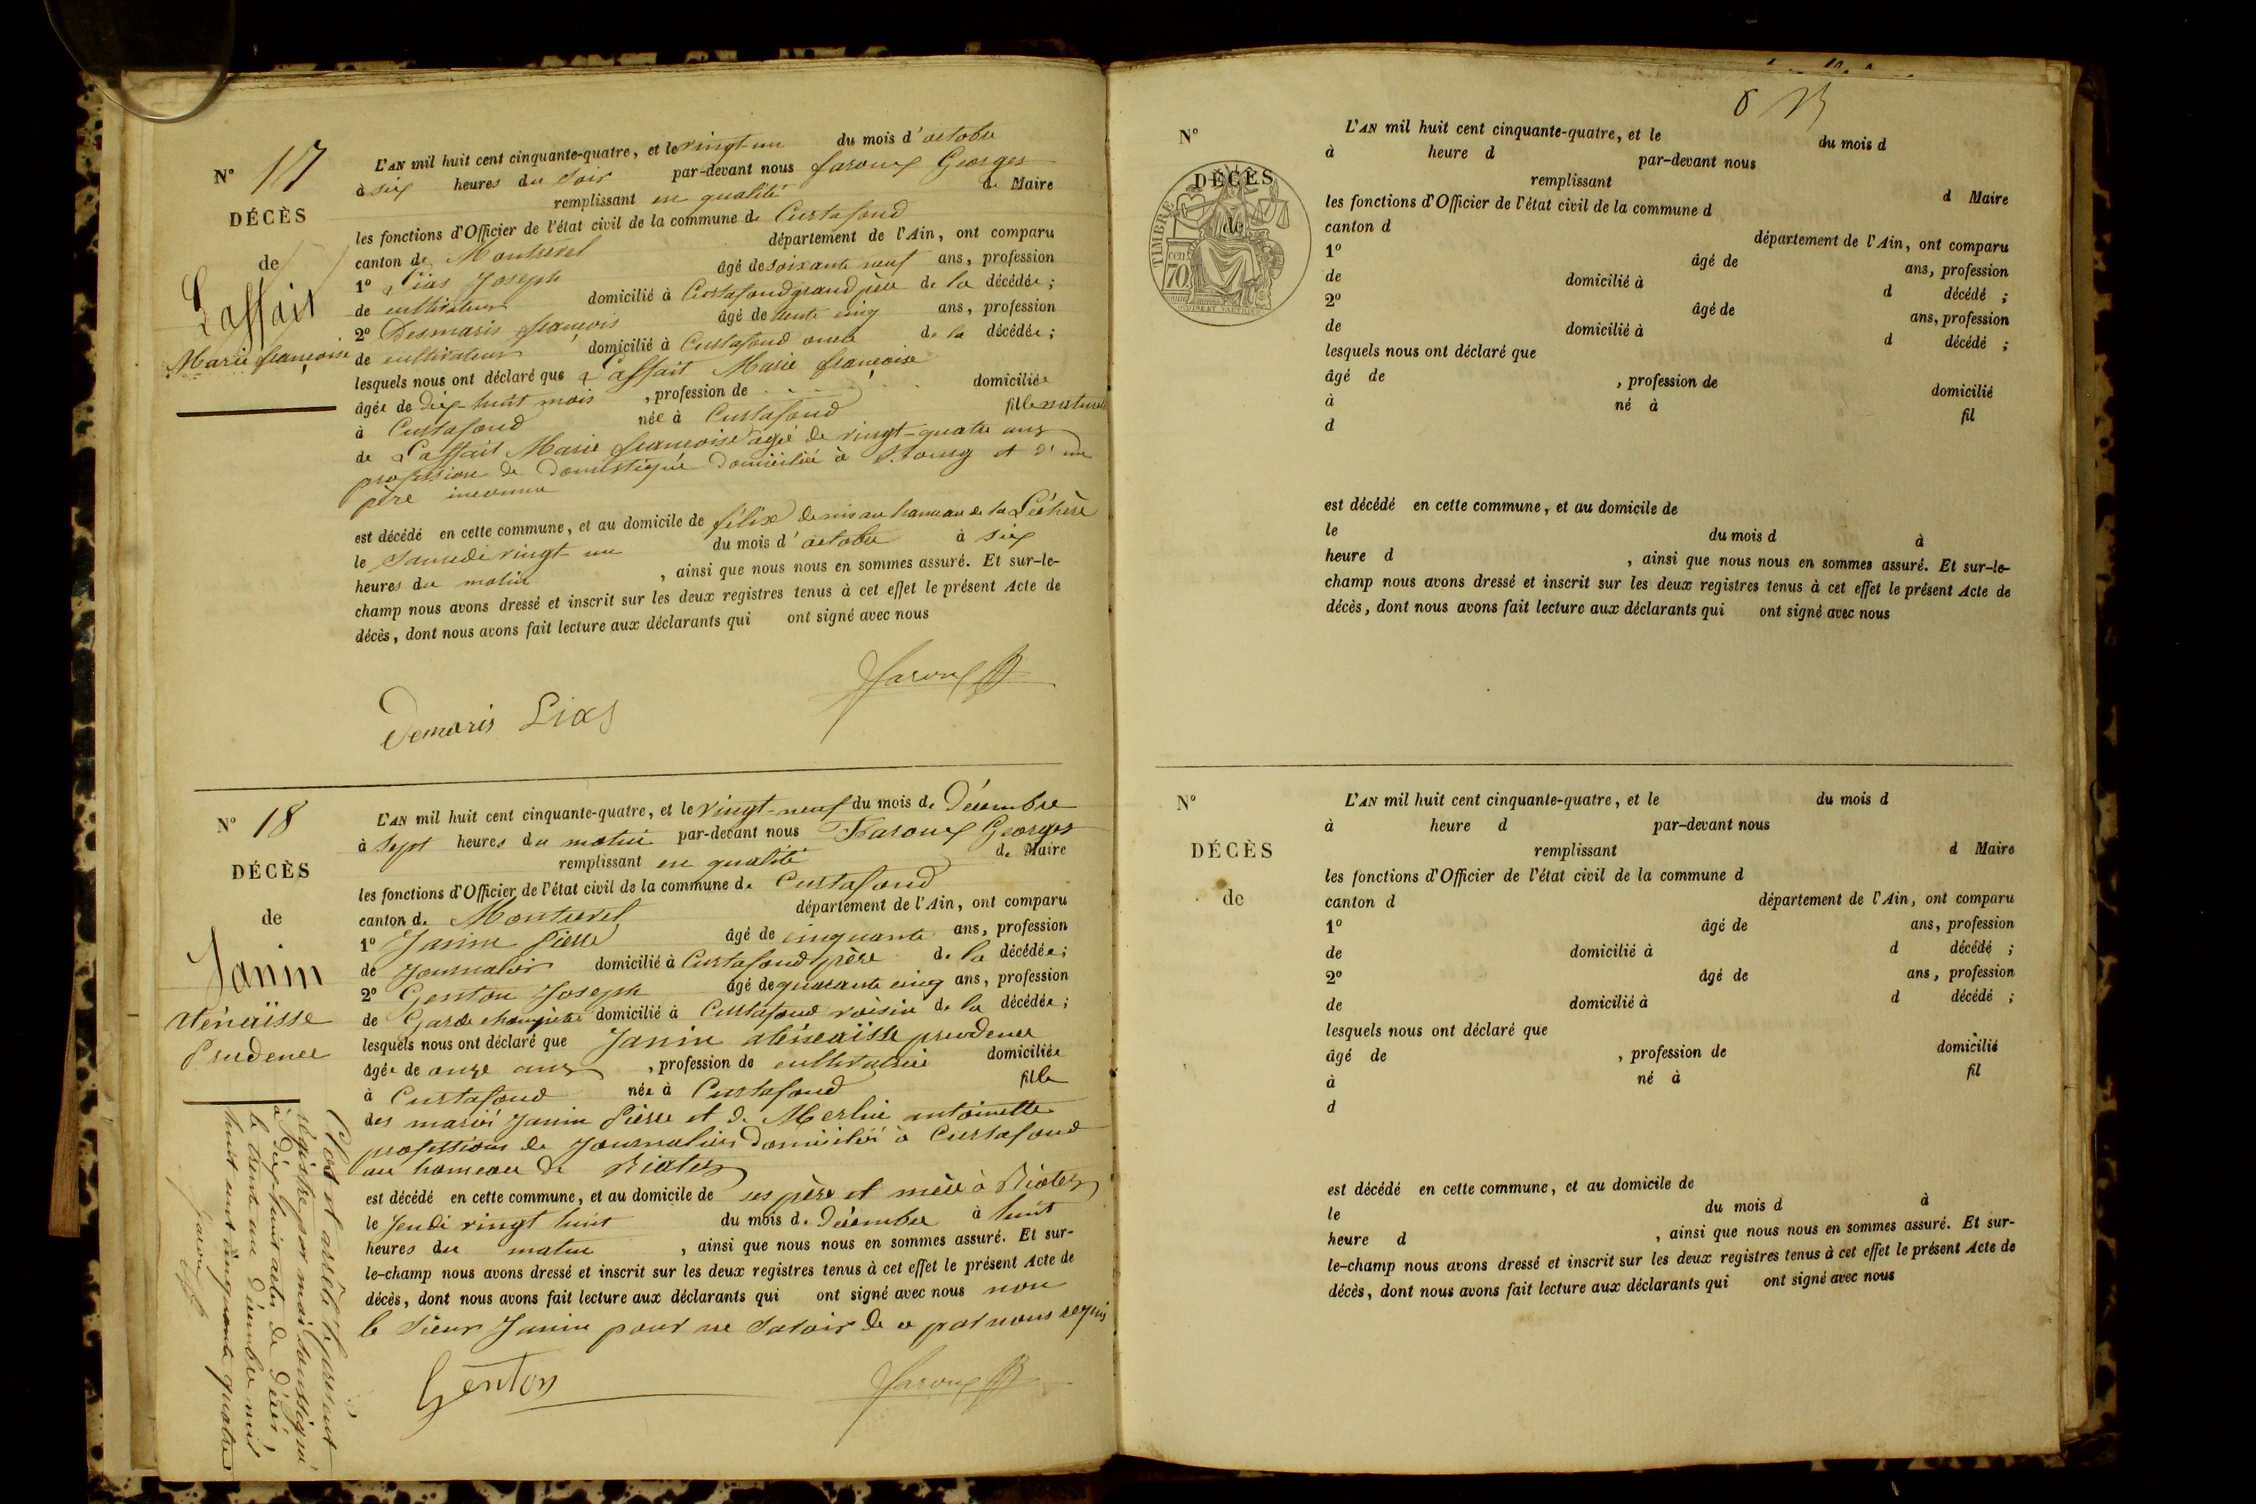 N° 17
DÉCÈS
de
Laffait
Marie françoise
L'AN mil huit cent cinquante-quatre, et le vingt-un du mois d'octobre
à six heures du soir par-devant nous faroux Georges
remplissant en qualité de Maire
les fonctions d'Officier de l'état civil de la commune de Curtafond
canton de Montrevel département de l'Ain, ont comparu
1° Lias Joseph âgé de soixante neuf ans, profession
de cultivateur domicilié à Curtafond grand père de la décédée ;
2° Desmaris françois âgé de trente cinq ans, profession
de cultivateur domicilié à Curtafond oncle de la décédée ;
lesquels nous ont déclaré que Laffait Marie françoise
âgée de dix-huit mois , profession de domiciliée
à Curtafond née à Curtafond fille naturelle
de Laffait Marie françoise agée de vingt-quatre ans
profession de domestique domiciliée à Bourg et d'un
père inconnu
est décédé en cette commune, et au domicile de félix denis au hameau de la Léchère
le Samedi vingt-un du mois d'octobre à six
heures du matin , ainsi que nous nous en sommes assuré. Et sur-le-
champ nous avons dressé et inscrit sur les deux registres tenus à cet effet le présent Acte de
décès, dont nous avons fait lecture aux déclarants qui ont signé avec nous
faroux
Demaris Lias
N° 18
DÉCÈS
de
Janin
Aténaïsse
Prudence
L'AN mil huit cent cinquante-quatre, et le vingt-neuf du mois de Décembre
à sept heures du matin par-devant nous Faroux Georges
remplissant en qualité de Maire
les fonctions d'Officier de l'état civil de la commune de Curtafond
canton de Montrevel département de l'Ain, ont comparu
1° Janin Pierre âgé de cinquante ans, profession
de Journalier domicilié à Curtafond père de la décédée ;
2° Genton Joseph âgé de quarante cinq ans, profession
de Garde champêtre domicilié à Curtafond voisin de la décédée ;
lesquels nous ont déclaré que Janin aténeaïsse prudence
âgée de onze ans , profession de cultivatrice domiciliée
à Curtafond née à Curtafond fille
des mariés Janin Pierre et de Merlin antoinette
professions de Journaliers domiciliés à Curtafond
au hameau de Bioley
est décédé en cette commune, et au domicile de ses père et mère à Bioley
le Jeudi vingt huit du mois de Décembre à huit
heures du matin , ainsi que nous nous en sommes assuré. Et sur-
le-champ nous avons dressé et inscrit sur les deux registres tenus à cet effet le présent Acte de
décès, dont nous avons fait lecture aux déclarants qui ont signé avec nous non
le sieur Janin pour ne savoir de ce par nous requis
Genton
faroux
Clos et arrêté le présent
régistre par moi soussigné
à dix-huit actes de décès
le trente un décembre mil
huit cent cinquante quatre
faroux
N°
DÉCÈS
de
TIMBRE
70
L'AN mil huit cent cinquante-quatre, et le du mois d
à heure d par-devant nous
remplissant d Maire
les fonctions d'Officier de l'état civil de la commune d
canton d département de l'Ain, ont comparu
1° âgé de ans, profession
de domicilié à d décédé ;
2° âgé de ans, profession
de domicilié à d décédé ;
lesquels nous ont déclaré que
âgé de , profession de domicilié
à né à fil
d
est décédé en cette commune, et au domicile de
le du mois d à
heure d , ainsi que nous nous en sommes assuré. Et sur-le-
champ nous avons dressé et inscrit sur les deux registres tenus à cet effet le présent Acte de
décès, dont nous avons fait lecture aux déclarants qui ont signé avec nous
N°
DÉCÈS
de
L'AN mil huit cent cinquante-quatre, et le du mois d
à heure d par-devant nous
remplissant d Maire
les fonctions d'Officier de l'état civil de la commune d
canton d département de l'Ain, ont comparu
1° âgé de ans, profession
de domicilié à d décédé ;
2° âgé de ans, profession
de domicilié à d décédé ;
lesquels nous ont déclaré que
âgé de , profession de domicilié
à né à fil
d
est décédé en cette commune, et au domicile de
le du mois d à
heure d , ainsi que nous nous en sommes assuré. Et sur-
le-champ nous avons dressé et inscrit sur les deux registres tenus à cet effet le présent Acte de
décès, dont nous avons fait lecture aux déclarants qui ont signé avec nous